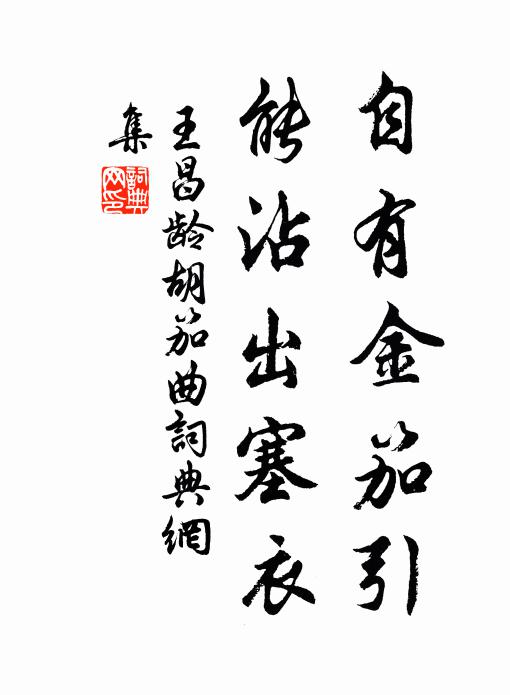 自有金笳引
能沾出塞衣
王昌龄胡笳曲詞典網
集
詞典网印